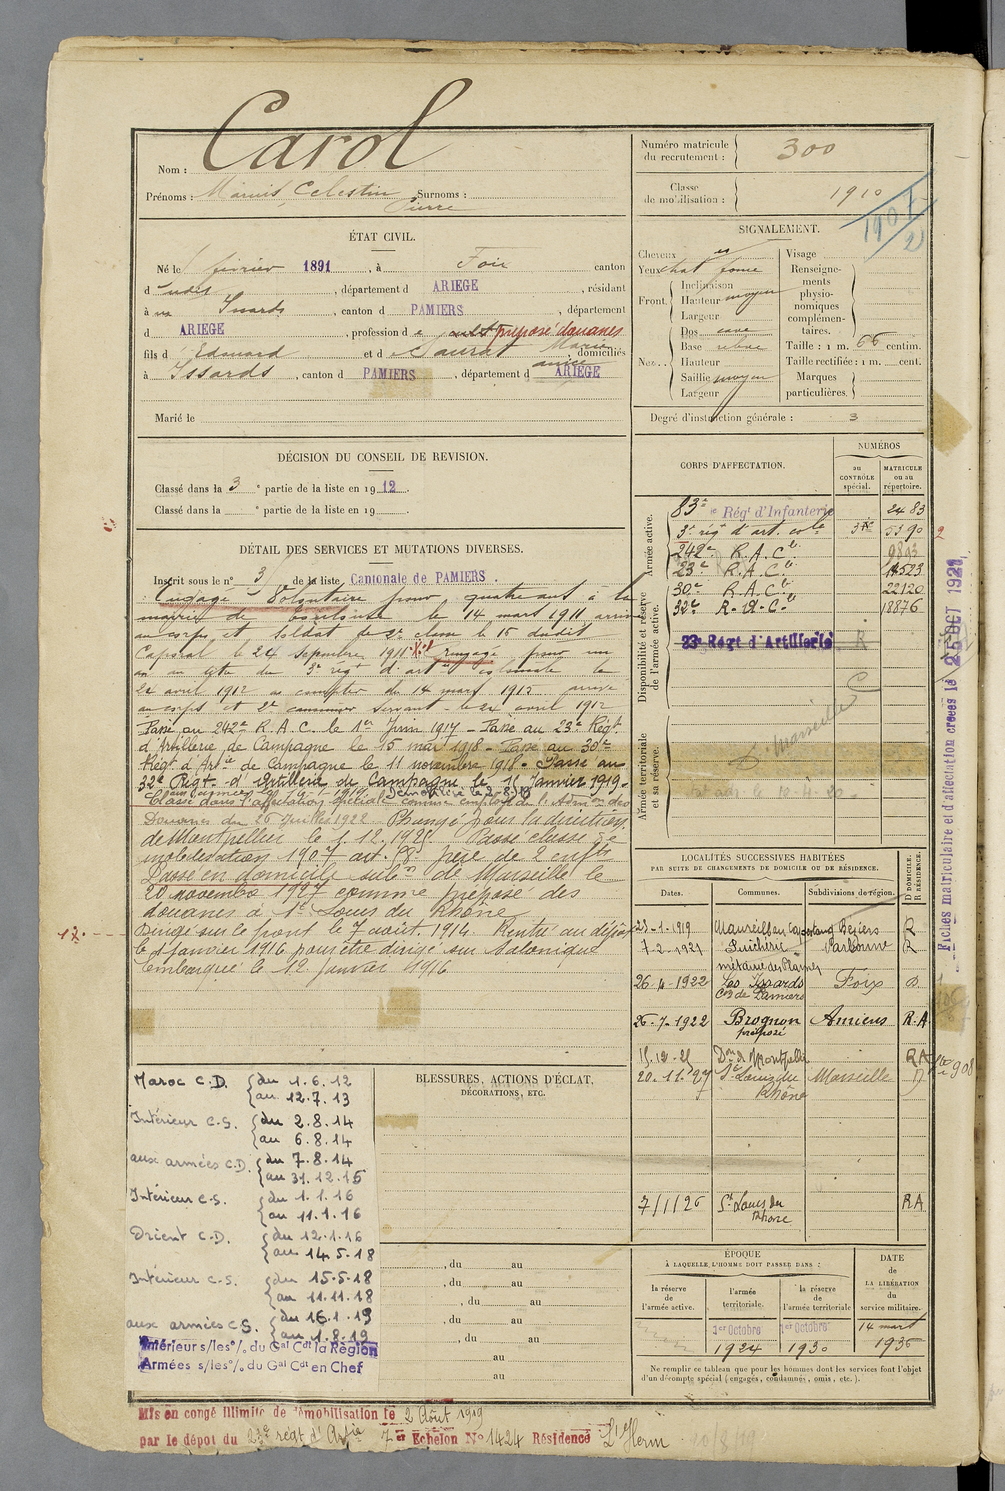 Carol
Nom :
Prénoms : Marius, Celestin Surnoms :
Pierre
Numéro matricule
du recrutement : 300
Classe
de mobilisation : 1910
1907
ÉTAT CIVIL.
Né le février 1891, à Foix canton
d dudit, département d ARIEGE, résidant
à Issards, canton d PAMIERS, département
d ARIEGE, profession de préposé douanes
fils d Edouard et de Saurat Marie domiciliés
à Issards, canton d PAMIERS, département d ARIEGE
Marié le
SIGNALEMENT.
Cheveux
Yeux
Front.
Inclinaison
Hauteur moyen
Largeur
Nez..
Dos cave
Base
Hauteur
Saillie moyen
Largeur
Visage
Renseigne-
ments
physio-
nomiques
complémen-
taires.
Taille : 1 m. 66 centim.
Taille rectifiée : 1 m. cent.
Marques
particulières.
Degré d'instruction générale : 3
DÉCISION DU CONSEIL DE REVISION.
Classé dans la 3e partie de la liste en 1912.
Classé dans la e partie de la liste en 19 .
DÉTAIL DES SERVICES ET MUTATIONS DIVERSES.
Inscrit sous le n° 3 de la liste Cantonale de PAMIERS.
Engagé Volontaire pour quatre ans à la
mairie de Toulouse le 14 mars 1911 arrivé
au corps et soldat de 2e classe le 15 dudit
Caporal le 24 Septembre 1911 rengagé pour un
an au 3e régt d'artie coloniale le
22 avril 1912 à compter du 14 mars 1915 arrivé
au corps et 2e canonnier servant le 24 avril 1912
Passé au 242e R.A.C. le 1er Juin 1917 – Passé au 23e Régt
d'Artillerie de Campagne le 15 mai 1918 – Passé au 30e
Régt d'Artie de Campagne le 11 novembre 1918 – Passé au
32e Régt d'Artillerie de Campagne le 16 Janvier 1919.
Démobilisé le 2-8-19
Classé dans l'affectation spéciale comme employé de l'Admon des
Douanes du 26 Juillet 1922 Changé pour la direction
de Montpellier le 1.12.1925 Passé classe de
mobilisation 1907 art. 58 père de 2 enfts
Passé en domicile subon de Marseille le
20 novembre 1927 comme préposé des
douanes à St Louis du Rhône
Dirigé sur le front le 7 août 1914. Rentré au dépôt
le 1 Janvier 1916 pour être dirigé sur Salonique
Embarqué le 12 janvier 1916
CORPS D'AFFECTATION.
NUMÉROS
au
CONTRÔLE
spécial.
MATRICULE
ou au
répertoire.
Armée active.
83e Régt d'Infanterie 2483
3e régt d'art. cole 5390
242e R.A.C. 9893
Disponibilité et réserve
de l'armée active.
23e R.A.C. 14523
30e R.A.C. 22120
32e R.A.C. 18876
23e Régt d'Artillerie R
Armée territoriale
et sa réserve.
D. Marseille
LOCALITÉS SUCCESSIVES HABITÉES
PAR SUITE DE CHANGEMENTS DE DOMICILE OU DE RÉSIDENCE.
Dates. Communes. Subdivisions de région. D DOMICILE. R RÉSIDENCE.
23-1-1919 Maureilhan Béziers R
7-2-1921 Narbonne R
26-4-1922 Les Issards Foix D.
Con de Pamiers
26-7-1922 Brognon Amiens R.A
préposé
15-12-25 Don de Montpellier RA
20-11-27 St Louis du Marseille D
Rhône
7/1/26 St Louis du RA
Rhone
Fiches matriculaire et d'affectation créées le 25 OCT 192
Maroc C.D. du 1.6.12
au 12.7.13
Intérieur C.S. du 2.8.14
au 6.8.14
aux armées C.D. du 7.8.14
au 31.12.15
Intérieur C.S. du 1.1.16
au 11.1.16
Orient C.D. du 12.1.16
au 14.5.18
Intérieur C.S. du 15.5.18
au 11.11.18
aux armées C.S. du 16.1.19
au 1.8.19
Intérieur s/les °/. du Gal Cdt la Région
Armées s/les °/. du Gal Cdt en Chef
BLESSURES, ACTIONS D'ÉCLAT,
DÉCORATIONS, ETC.
, du au
, du au
, du au
, du au
au
au
ÉPOQUE
À LAQUELLE L'HOMME DOIT PASSER DANS :
la réserve
de
l'armée active.
l'armée
territoriale.
la réserve
de
l'armée territoriale
DATE
de
LA LIBÉRATION
du
service militaire.
1er Octobre 1924
1er Octobre 1930
14 mars 1936
Ne remplir ce tableau que pour les hommes dont les services font l'objet
d'un décompte spécial (engagés, condamnés, omis, etc.).
Mis en congé illimité de démobilisation le 2 Août 1919
par le dépot du 23e régt d'Artie 7e Echelon N° 1424 Résidence L'Herm